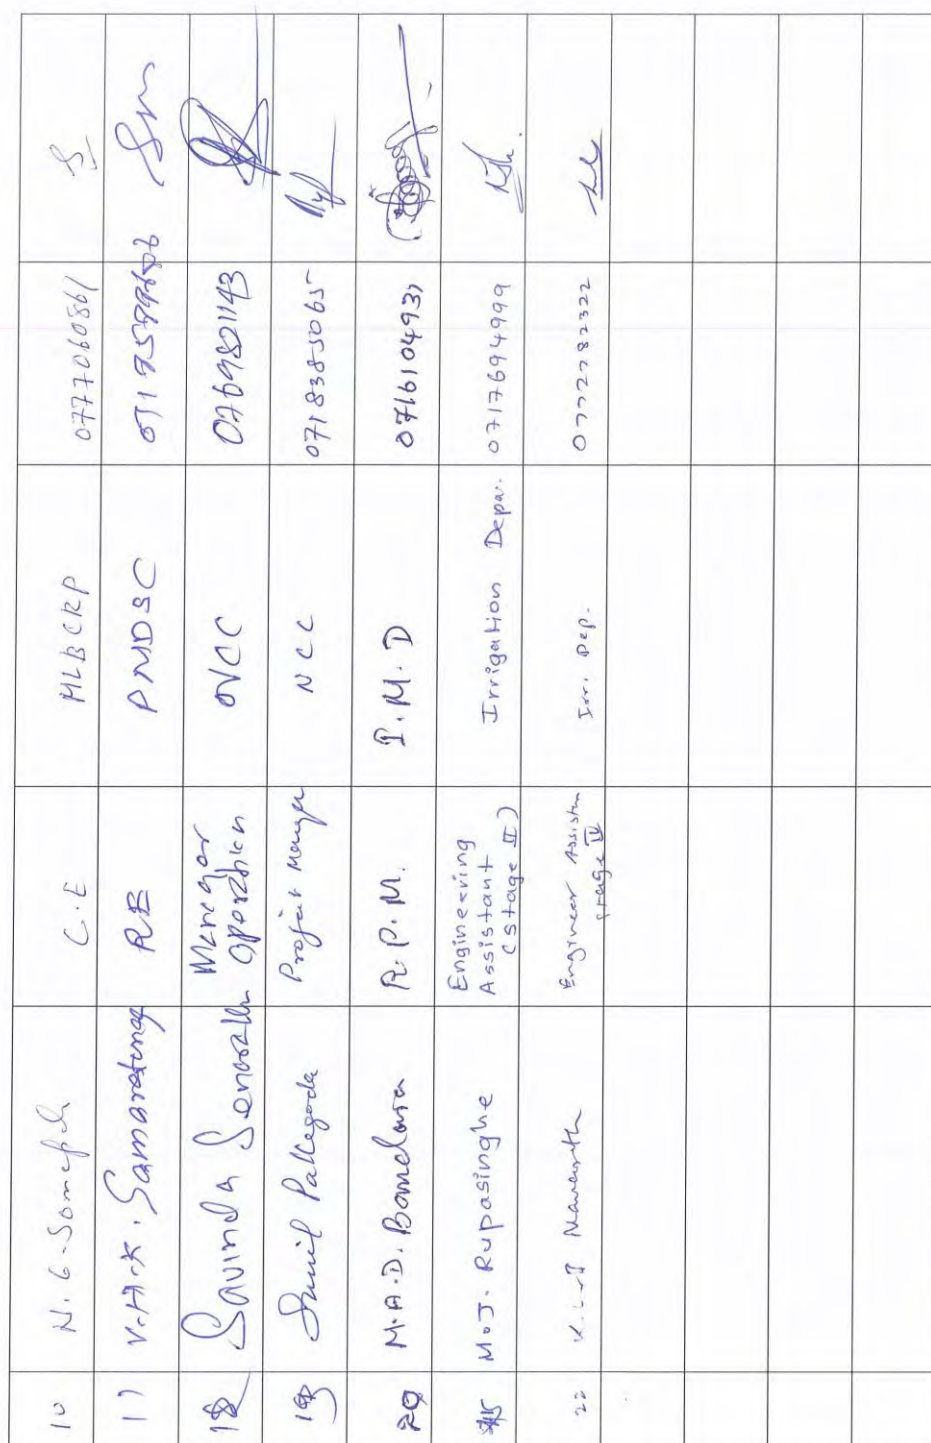 10 N. G. Somapala C.E MLBCRP 0777060861
17 V.H.K. Samaratunga RE PMDSC
18 Savinda Senarath Manager Operation NCC 0769821143
19 Sunil Pallegoda Project Manager NCC 0718385065
20 M.A.D. Bandara R.P.M. I.M.D 0716104931
M.J. Rupasinghe Engineering Assistant (Stage II) Irrigation Depar. 0717694999
22 Engineer Assistn stage IV Irr. Dep. 0772782322